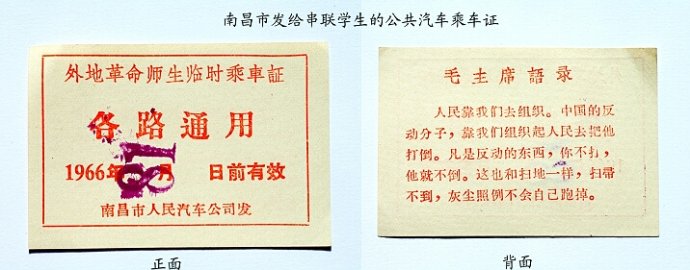 南昌市发给串联学生的公共汽车乘车证
外地革命师生临时乘車証
各路通用
1966年 月 日前有效
18
南昌市人民汽车公司发
正面
毛主席語录
人民靠我们去组织。中国的反
动分子，靠我们组织起人民去把他
打倒。凡是反动的东西，你不打，
他就不倒。这也和扫地一样，扫帚
不到，灰尘照例不会自己跑掉。
背面